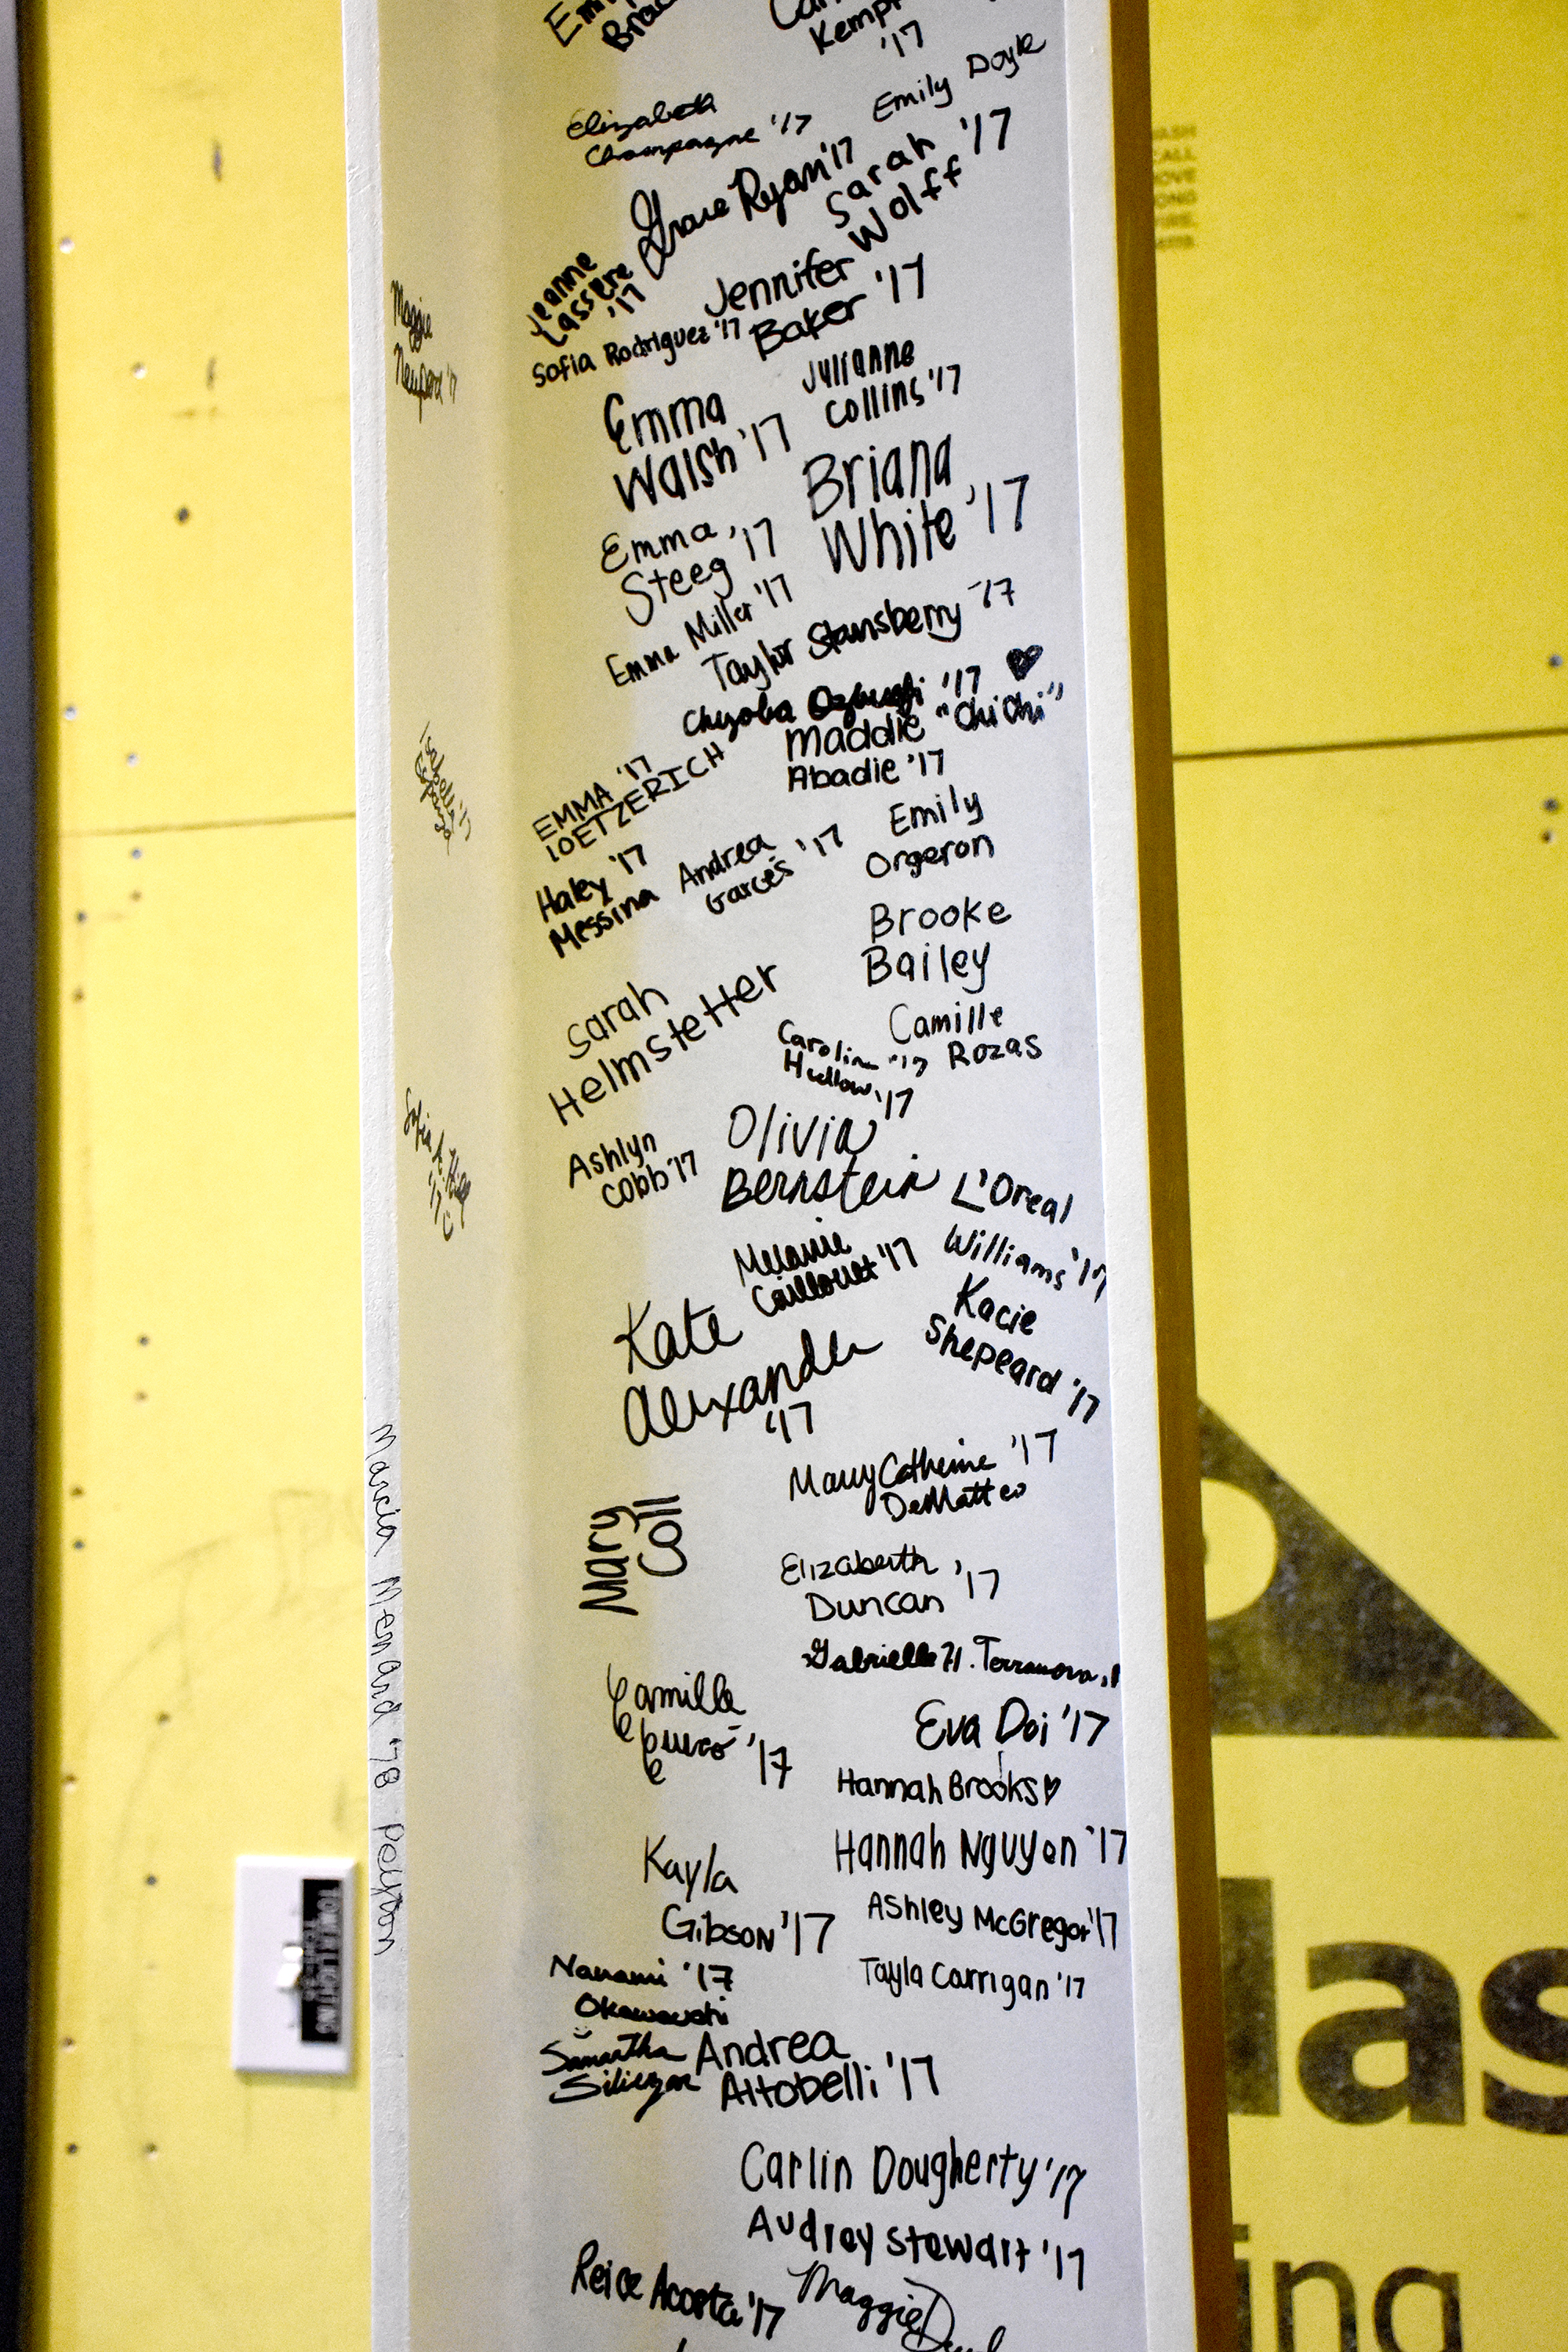 Kemp
'17
Elizabeth
Champagne '17
Emily Doyle
Grace Ryan '17
Sarah '17
Wolff
Jeanne
Lassere
'17
Jennifer
Baker '17
Sofia Rodriguez '17
Maggie
Julianne
Collins '17
Emma
Walsh '17
Briana
White '17
Emma '17
Steeg
Emma Miller '17
Taylor Stansberry '17
Chizoba '17 "ChiChi"
Maddie
Abadie '17
EMMA '17
LOETZERICH
Emily
Orgeron
Haley '17
Messina
Andrea
Garces '17
Brooke
Bailey
Sarah
Helmstetter
Camille
Rozas
Caroline '17
Ashlyn
Cobb '17
Olivia '17
Bernstein
L'Oreal
Williams '17
Melanie
Caillouet '17
Kacie
Shepeard '17
Kate
Alexander
'17
Mary Catherine '17
DeMatteo
Mary
Coll
Elizabeth '17
Duncan
Gabrielle H. Terranova
Camille
'17
Eva Doi '17
Hannah Brooks
Marcia Menard '78 Peyton
Hannah Nguyen '17
Kayla
Gibson '17
Ashley McGregor '17
Nanami '17
Okawauchi
Tayla Carrigan '17
Samantha
Siliezar
Andrea
Altobelli '17
Carlin Dougherty '17
Audrey Stewart '17
Reice Acosta '17
Maggie
las
ing